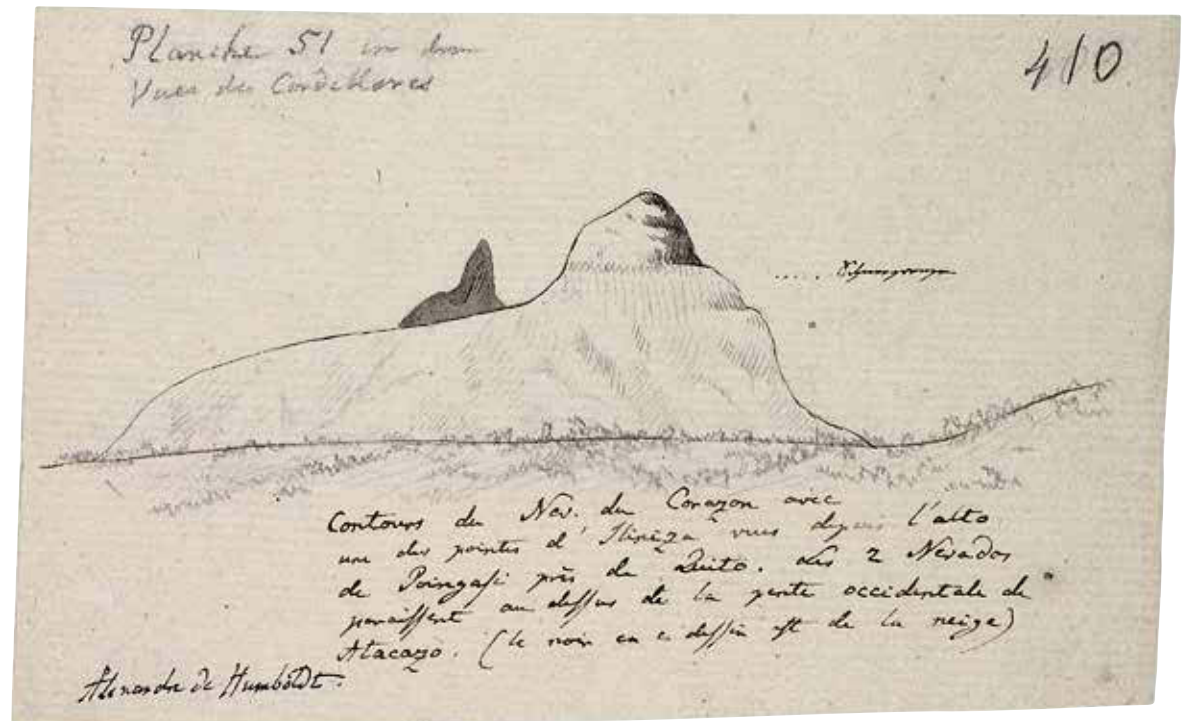 Planche 51 in dem
Vues des Cordillères
410
..... Schneegrenze
Contours du Nev. du Corazon avec
une des pointes d'Ilinéza vues depuis l'alto
de Poingasi près de Quito. Les 2 Nevados
paraissent au dessus de la pente occidentale de
Atacazo. (le noir en ce dessin est de la neige)
Alexandre de Humboldt.